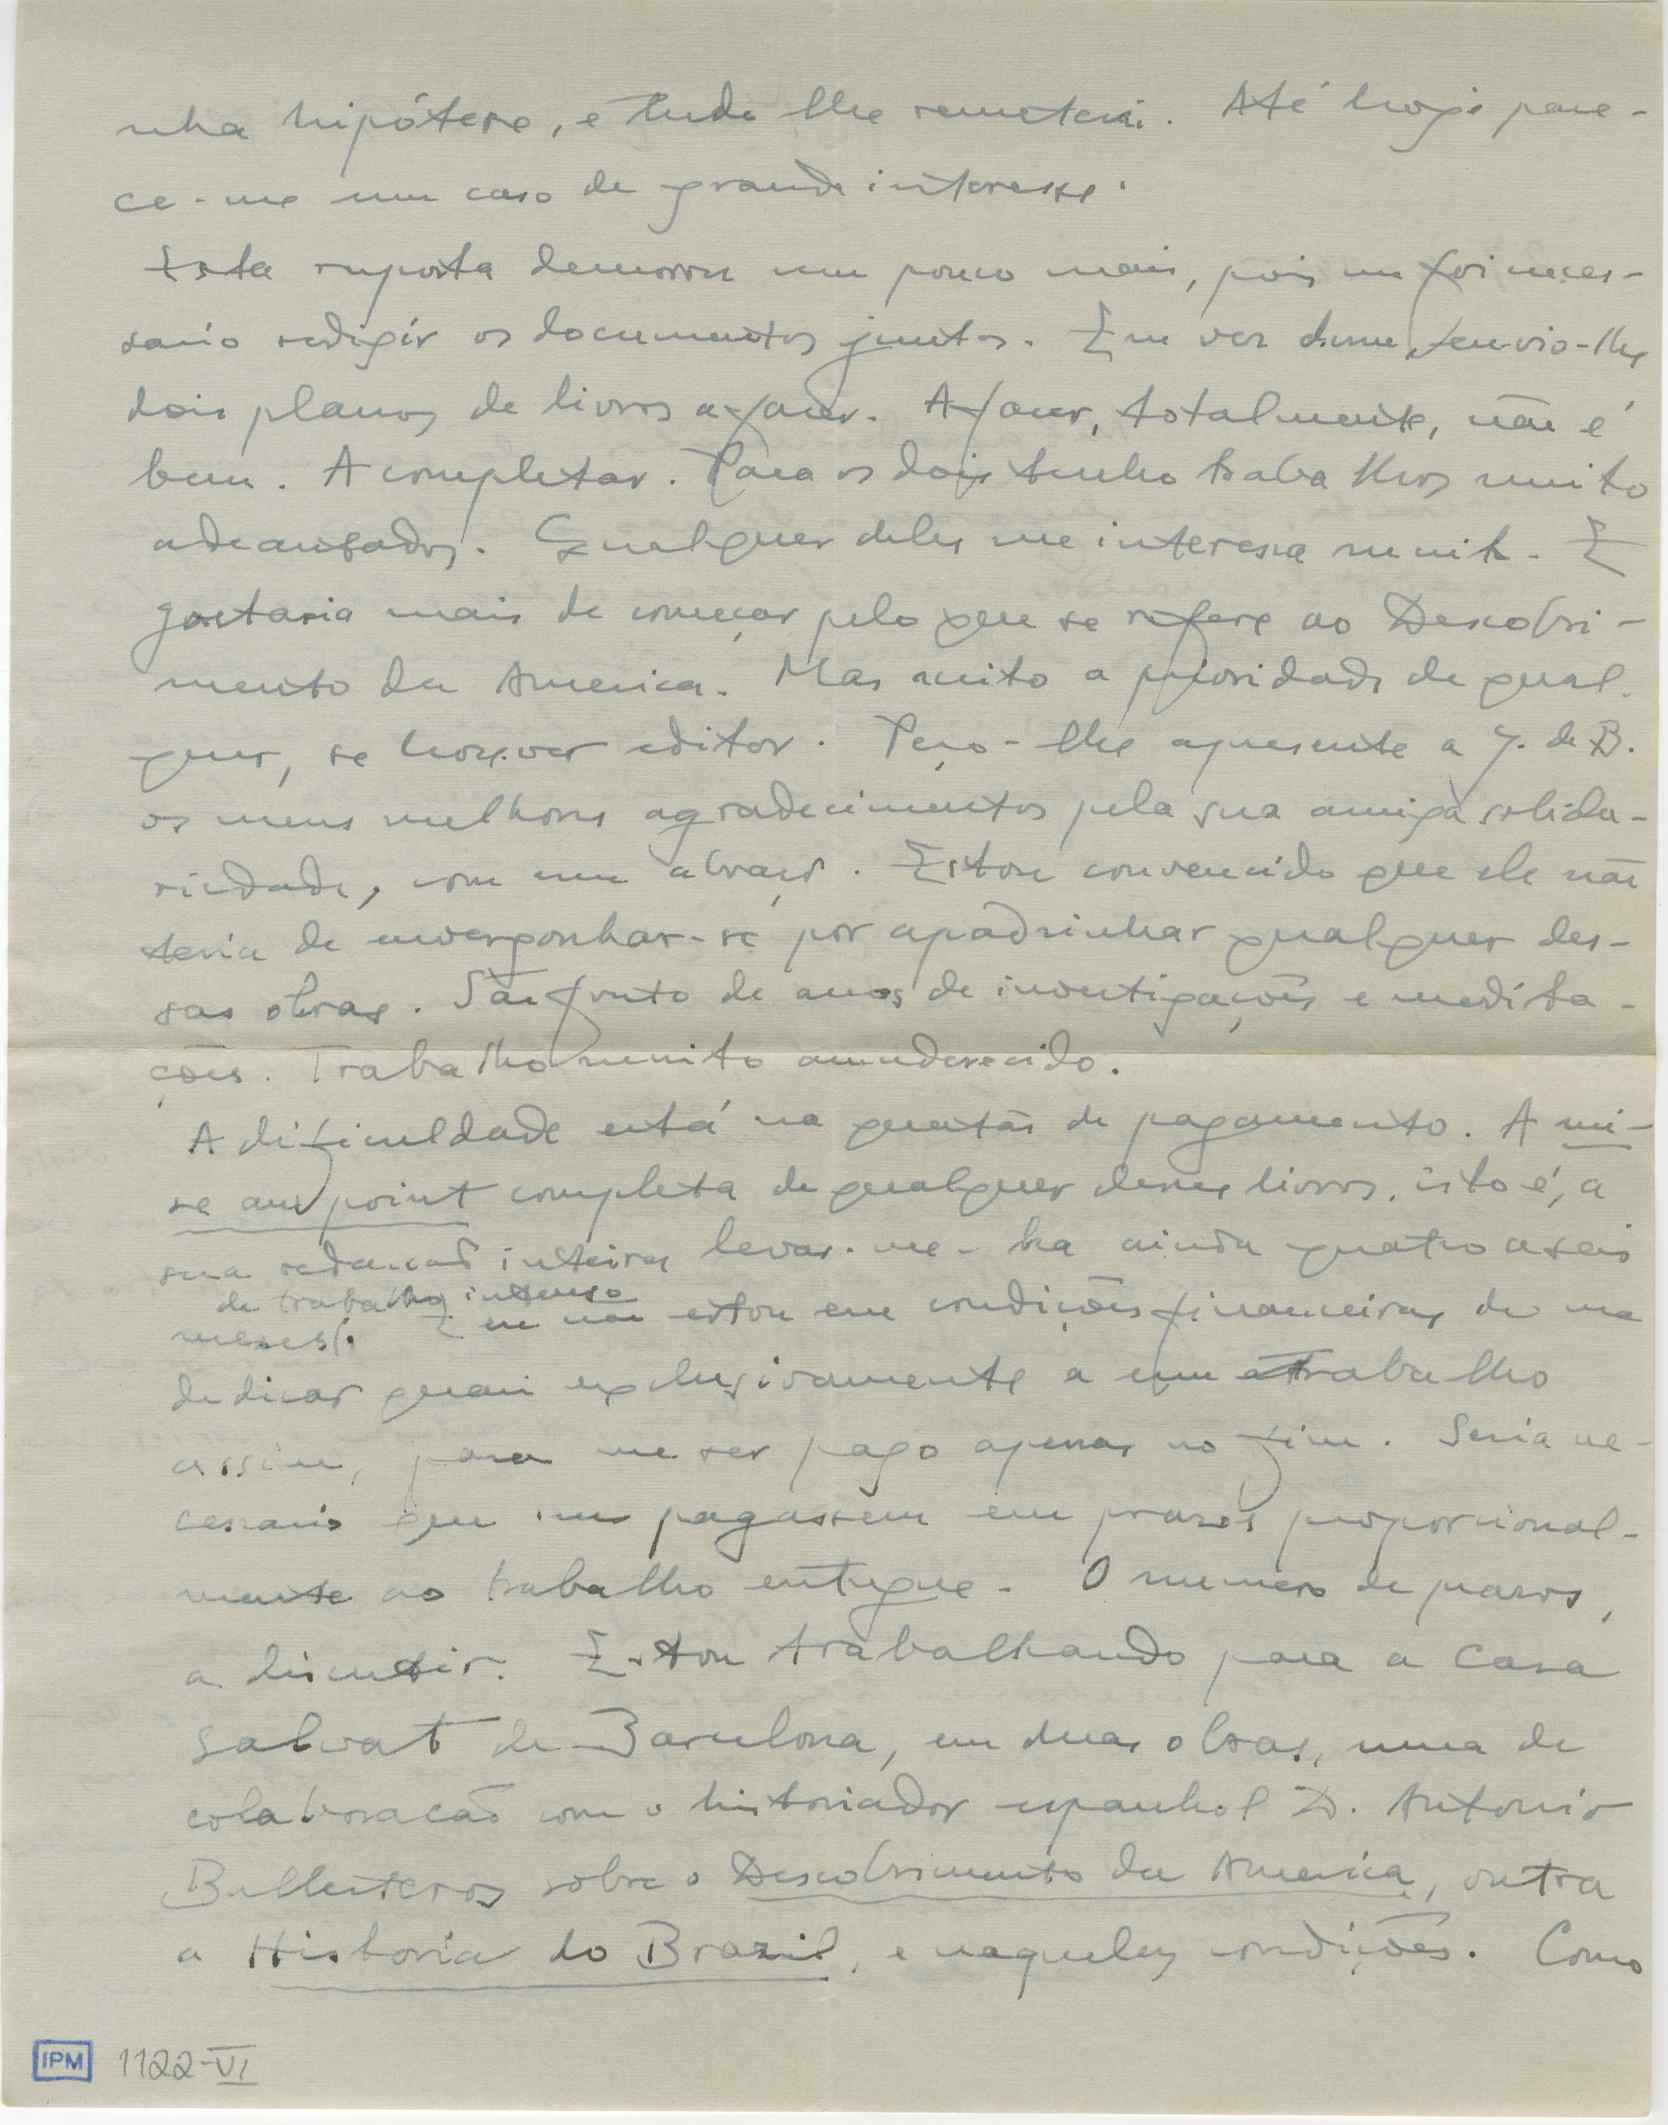 nha hipótese, e tudo lhe remeterei. Até hoje pare-
ce-me um caso de grande interesse.
Esta resposta demorou um pouco mais, pois me foi neces-
sario redigir os documentos juntos. Em vez dum, envio-lhe
dois planos de livros a fazer. A fazer, totalmente, não é
bem. A completar. Para os dois tenho trabalhos muito
adeantados. Qualquer deles me interessa muito. E
gostaria mais de começar pelo que se refere ao Descobri-
mento da America. Mas aceito a prioridade de qual-
quer, se houver editor. Peço-lhe apresente a J. de B.
os meus melhores agradecimentos pela sua amiga solida-
riedade, com um abraço. Estou convencido que ele não
teria de envergonhar-se por apadrinhar qualquer des-
sas obras. São fruto de anos de investigações e medita-
ções. Trabalho muito amadurecido.
A dificuldade está na questão de pagamento. A mi-
se au point completa de qualquer desses livros, isto é, a
sua redacção inteira levar-me-ha ainda quatro a seis
de trabalho intenso
meses. E eu não estou em condições financeiras de me
dedicar quasi exclusivamente a um trabalho
assim, para me ser pago apenas no fim. Seria ne-
cessario que me pagassem em prazos proporcional-
mente ao trabalho entregue. O numero de prazos,
a discutir. Estou trabalhando para a Casa
Salvat de Barcelona, em duas obras, uma de
colaboração com o historiador espanhol D. Antonio
Ballesteros sobre o Descobrimento da America, outra
a Historia do Brazil, e naquelas condições. Como
IPM 1122-VI